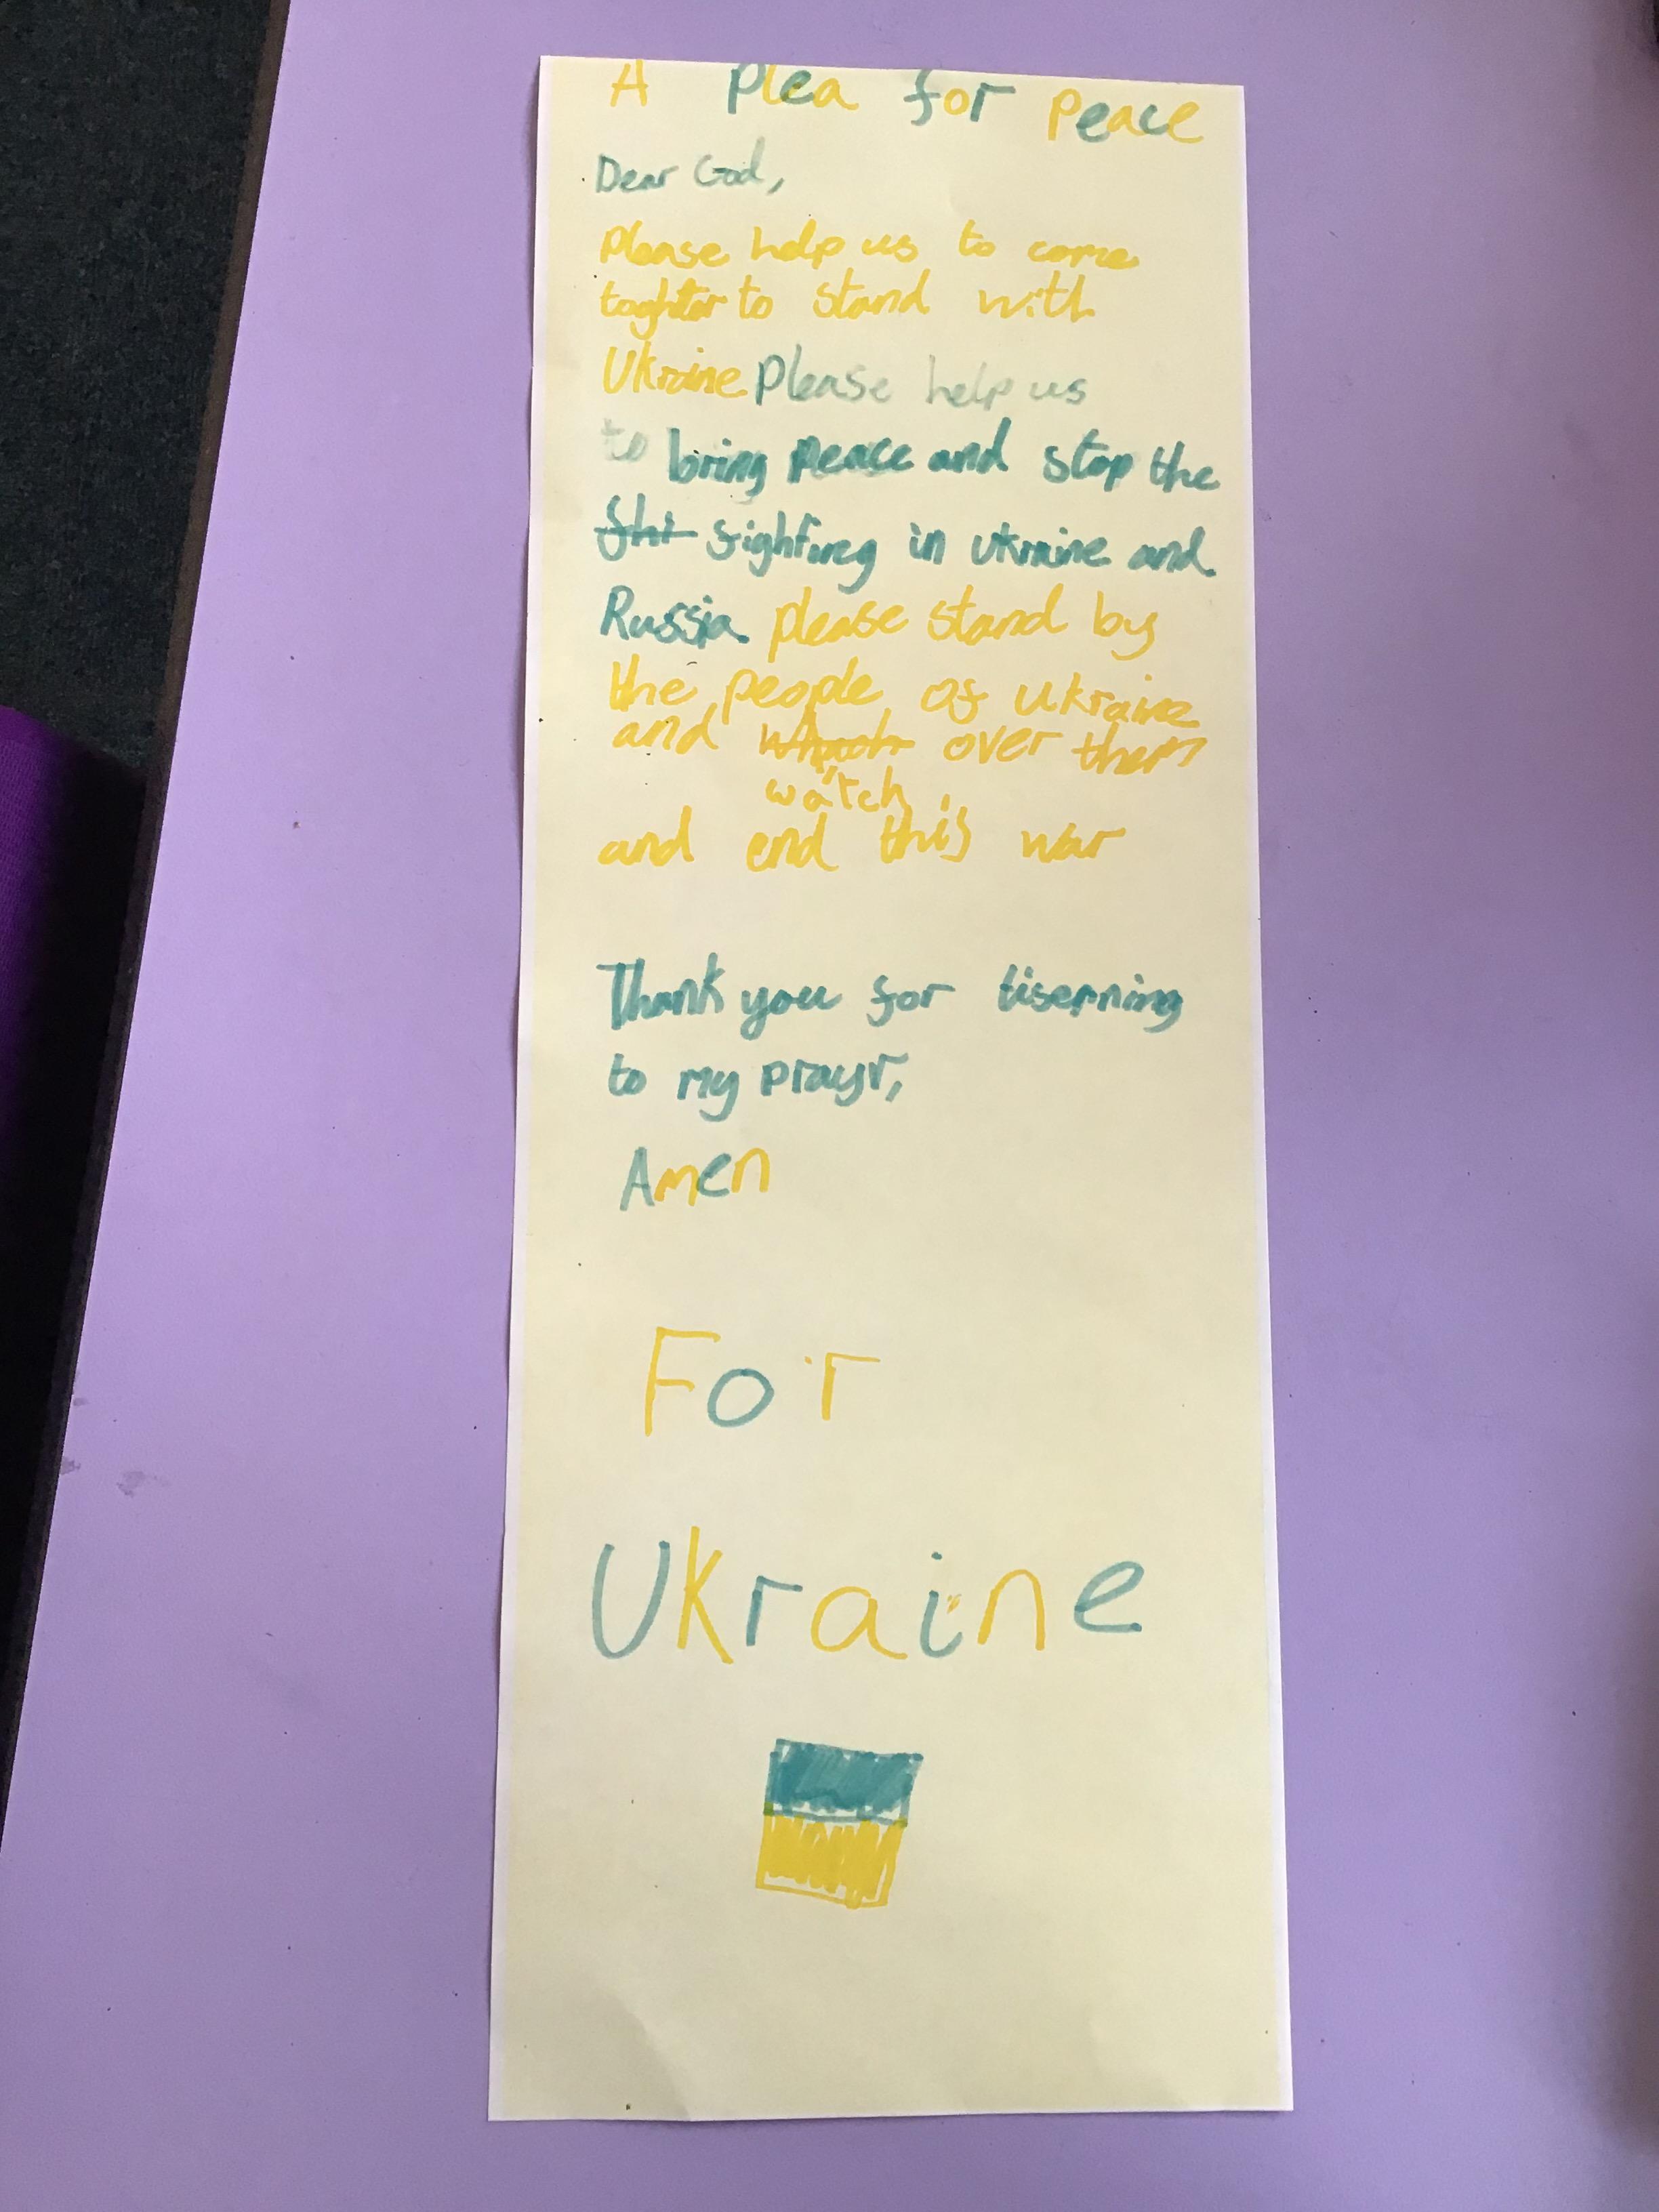 A plea for peace
Dear God,
Please help us to come
toghter to stand with
Ukraine Please help us
to bring peace and stop the
fighting in ukraine and
Russia. please stand by
the people of ukraine
and over them
watch
and end this war
Thank you for liserning
to my prayr,
Amen
For
Ukraine